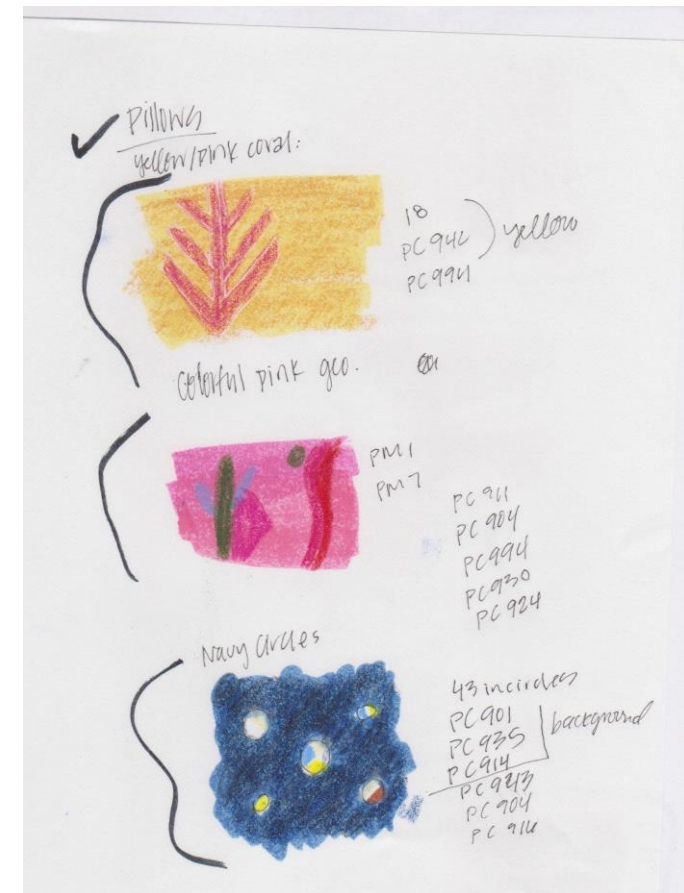 Pillows
yellow/pink coral:
18
PC942
yellow
PC994
Colorful pink geo.
PM1
PM7
PC911
PC904
PC994
PC930
PC924
Navy Circles
43 in circles
PC901
PC935
background
PC914
PC943
PC904